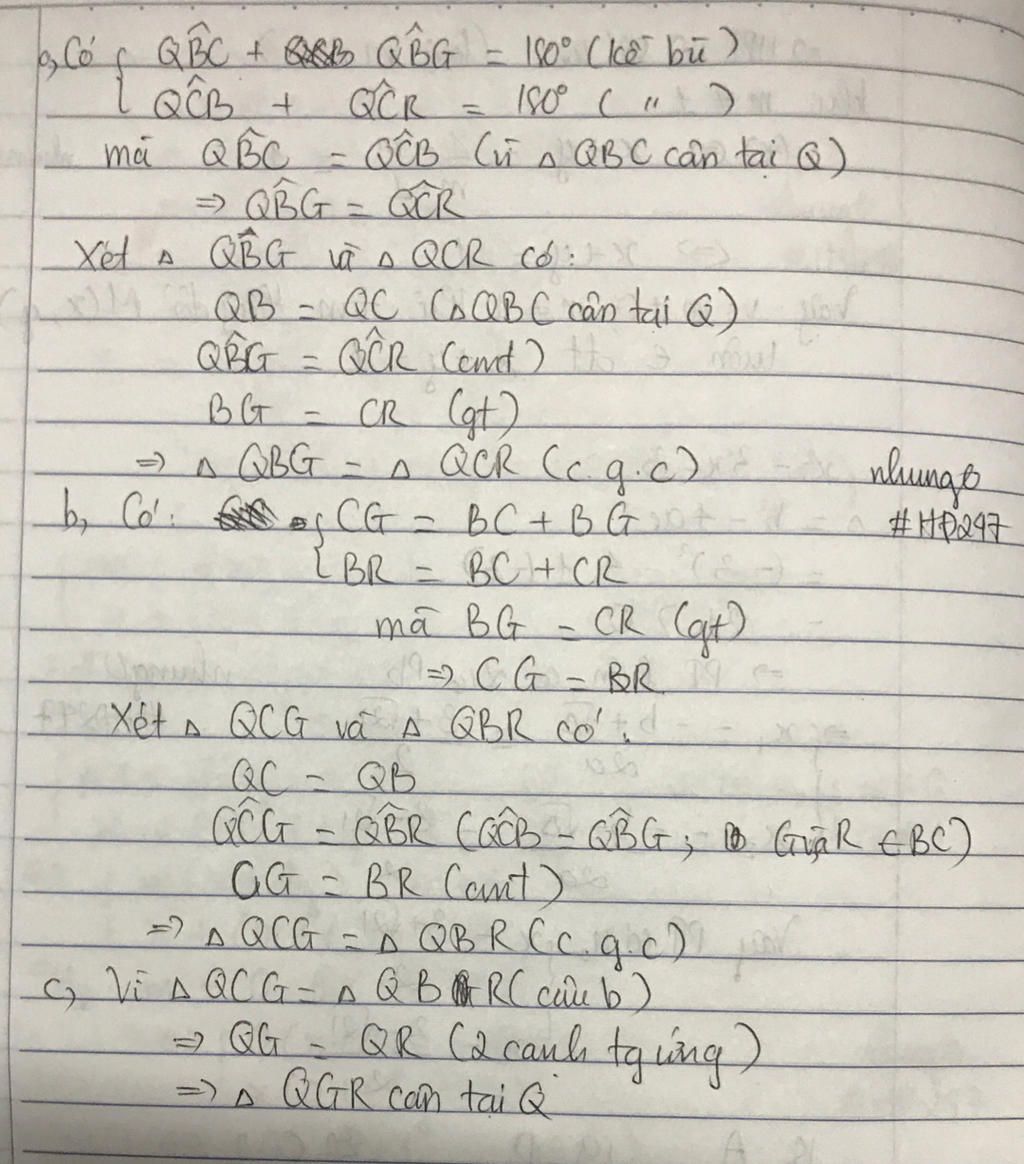 a, Có { QB̂C + QB̂G = 180° (kề bù)
QĈB + QĈR = 180° ( " )
mà QB̂C = QĈB (vì △ QBC cân tại Q)
=> QB̂G = QĈR
Xét △ QB̂G và △ QCR có:
QB = QC (△QBC cân tại Q)
QB̂G = QĈR (cmt)
BG = CR (gt)
=> △ QBG = △ QCR (c.g.c)
nhung
#HĐ247
b, Có: { CG = BC + BG
BR = BC + CR
mà BG = CR (gt)
=> CG = BR
Xét △ QCG và △ QBR có:
QC = QB
QĈG = QB̂R (QĈB = QB̂G; G và R ∈ BC)
CG = BR (cmt)
=> △ QCG = △ QBR (c.g.c)
c, Vì △ QCG = △ QBR (câu b)
=> QG = QR (2 cạnh tg ứng)
=> △ QGR cân tại Q